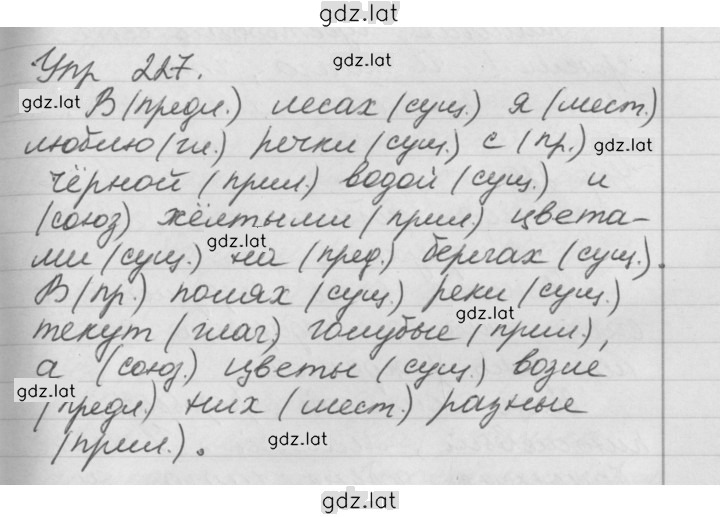 gdz.lat
Упр 227.
gdz.lat
gdz.lat
В (предл.) лесах (сущ.) я (мест.)
люблю (гл.) речки (сущ.) с (пр.)
gdz.lat
чёрной (прил.) водой (сущ.) и
(союз) жёлтыми (прил.) цвета-
gdz.lat
ми (сущ.) на (пред.) берегах (сущ.).
В (пр.) полях (сущ.) реки (сущ.)
gdz.lat
текут (глаг.) голубые (прил.),
а (союз.) цветы (сущ.) возле
gdz.lat
(предл.) них (мест.) разные
(прил.).
gdz.lat
gdz.lat